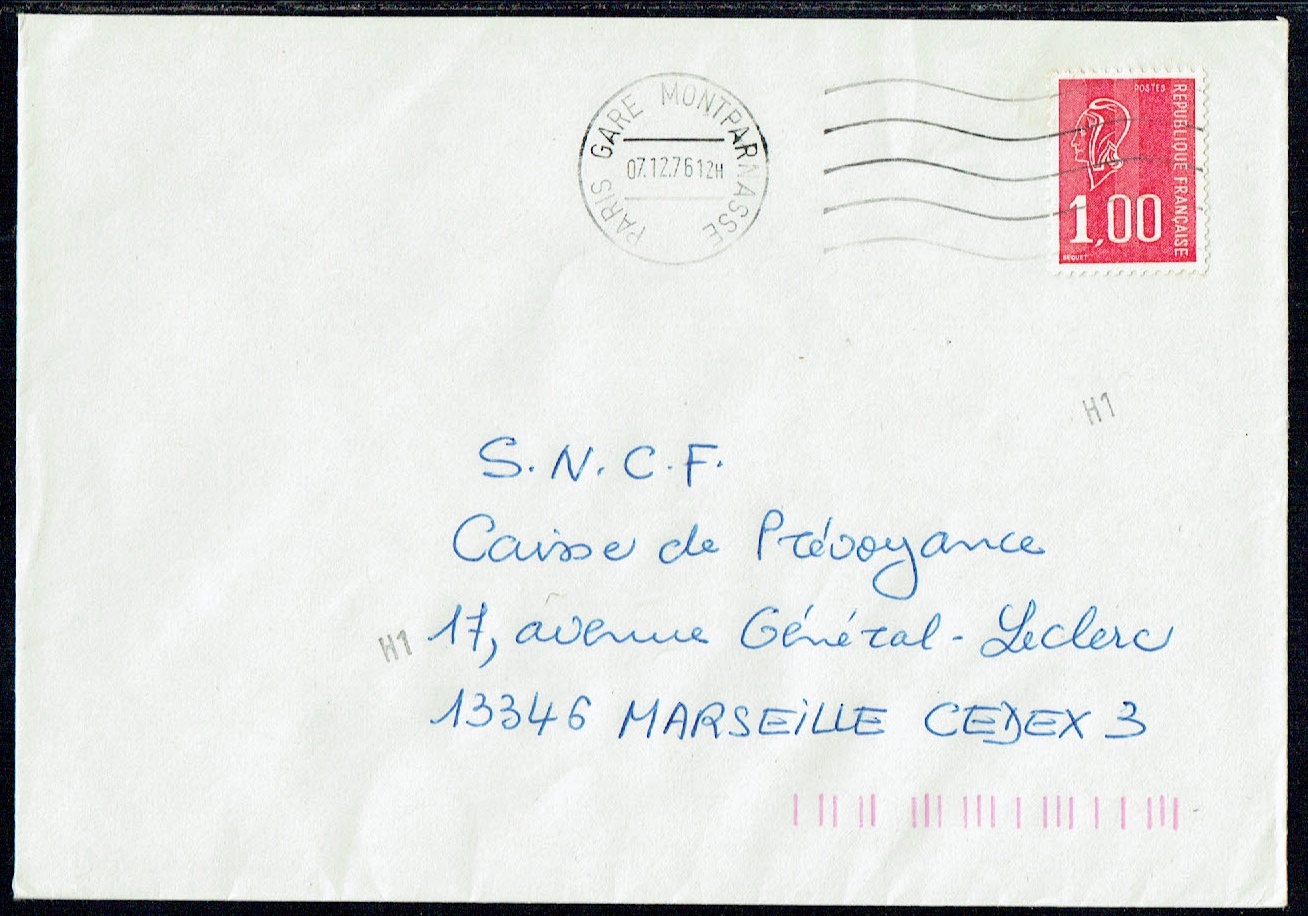 PARIS GARE MONTPARNASSE
07.12.76 12H
POSTES
REPUBLIQUE FRANÇAISE
1,00
BEQUET
H1
S.N.C.F.
Caisse de Prévoyance
H1
17, avenue Général-Leclerc
13346 MARSEILLE CEDEX 3